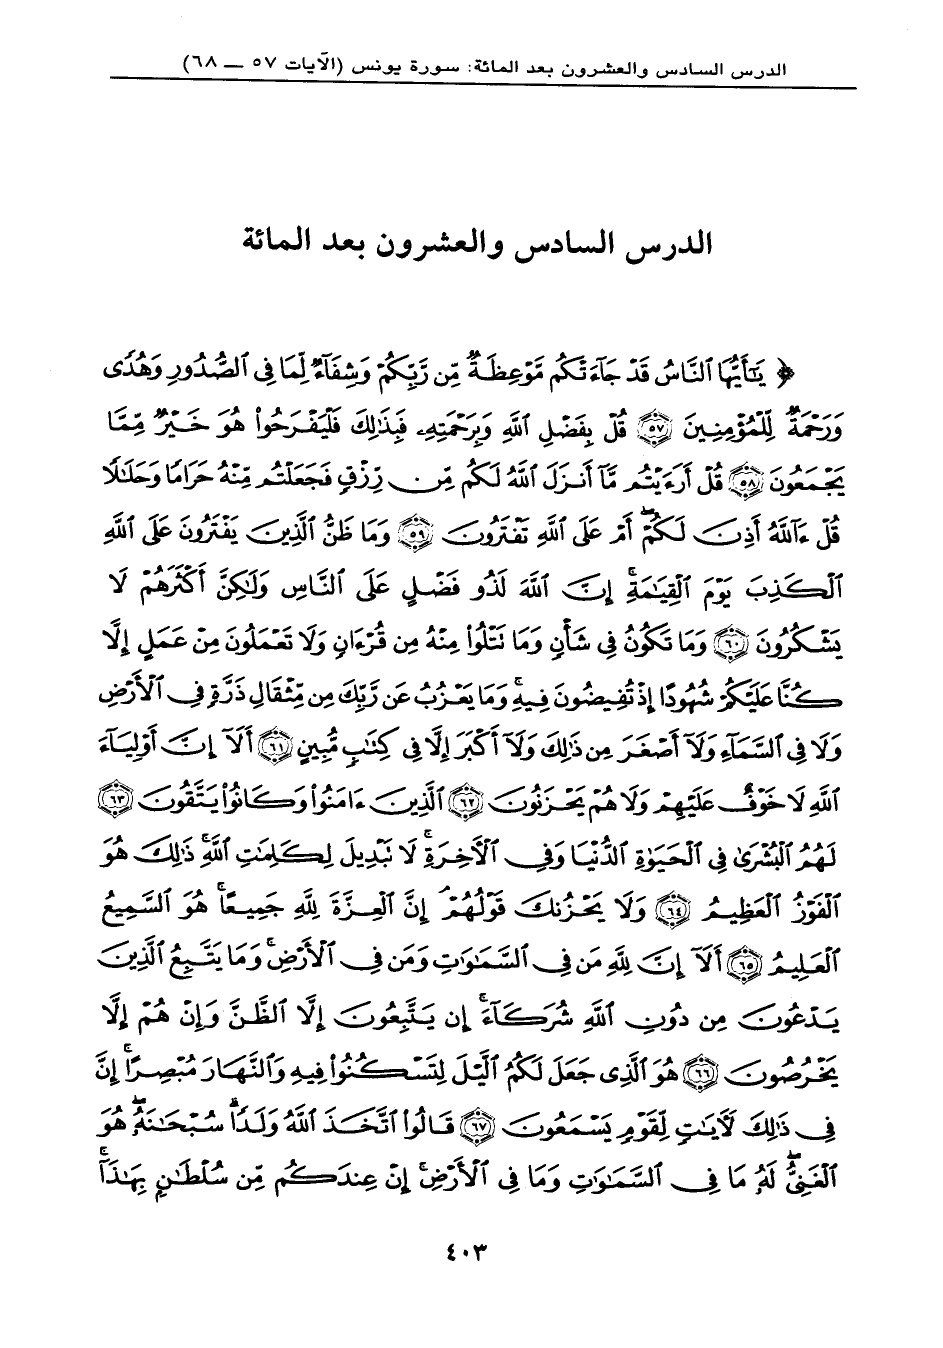 الدرس السادس والعشرون بعد المائة: سورة يونس (الآيات ٥٧ ــ ٦٨)
الدرس السادس والعشرون بعد المائة
﴿ يَٰٓأَيُّهَا ٱلنَّاسُ قَدْ جَآءَتْكُم مَّوْعِظَةٌ مِّن رَّبِّكُمْ وَشِفَآءٌ لِّمَا فِى ٱلصُّدُورِ وَهُدًى
وَرَحْمَةٌ لِّلْمُؤْمِنِينَ ۝٥٧ قُلْ بِفَضْلِ ٱللَّهِ وَبِرَحْمَتِهِۦ فَبِذَٰلِكَ فَلْيَفْرَحُوا۟ هُوَ خَيْرٌ مِّمَّا
يَجْمَعُونَ ۝٥٨ قُلْ أَرَءَيْتُم مَّآ أَنزَلَ ٱللَّهُ لَكُم مِّن رِّزْقٍ فَجَعَلْتُم مِّنْهُ حَرَامًا وَحَلَٰلًا
قُلْ ءَآللَّهُ أَذِنَ لَكُمْ ۖ أَمْ عَلَى ٱللَّهِ تَفْتَرُونَ ۝٥٩ وَمَا ظَنُّ ٱلَّذِينَ يَفْتَرُونَ عَلَى ٱللَّهِ
ٱلْكَذِبَ يَوْمَ ٱلْقِيَٰمَةِ ۗ إِنَّ ٱللَّهَ لَذُو فَضْلٍ عَلَى ٱلنَّاسِ وَلَٰكِنَّ أَكْثَرَهُمْ لَا
يَشْكُرُونَ ۝٦٠ وَمَا تَكُونُ فِى شَأْنٍ وَمَا تَتْلُوا۟ مِنْهُ مِن قُرْءَانٍ وَلَا تَعْمَلُونَ مِنْ عَمَلٍ إِلَّا
كُنَّا عَلَيْكُمْ شُهُودًا إِذْ تُفِيضُونَ فِيهِ ۚ وَمَا يَعْزُبُ عَن رَّبِّكَ مِن مِّثْقَالِ ذَرَّةٍ فِى ٱلْأَرْضِ
وَلَا فِى ٱلسَّمَآءِ وَلَآ أَصْغَرَ مِن ذَٰلِكَ وَلَآ أَكْبَرَ إِلَّا فِى كِتَٰبٍ مُّبِينٍ ۝٦١ أَلَآ إِنَّ أَوْلِيَآءَ
ٱللَّهِ لَا خَوْفٌ عَلَيْهِمْ وَلَا هُمْ يَحْزَنُونَ ۝٦٢ ٱلَّذِينَ ءَامَنُوا۟ وَكَانُوا۟ يَتَّقُونَ ۝٦٣
لَهُمُ ٱلْبُشْرَىٰ فِى ٱلْحَيَوٰةِ ٱلدُّنْيَا وَفِى ٱلْأَخِرَةِ ۚ لَا تَبْدِيلَ لِكَلِمَٰتِ ٱللَّهِ ۚ ذَٰلِكَ هُوَ
ٱلْفَوْزُ ٱلْعَظِيمُ ۝٦٤ وَلَا يَحْزُنكَ قَوْلُهُمْ ۘ إِنَّ ٱلْعِزَّةَ لِلَّهِ جَمِيعًا ۚ هُوَ ٱلسَّمِيعُ
ٱلْعَلِيمُ ۝٦٥ أَلَآ إِنَّ لِلَّهِ مَن فِى ٱلسَّمَٰوَٰتِ وَمَن فِى ٱلْأَرْضِ ۗ وَمَا يَتَّبِعُ ٱلَّذِينَ
يَدْعُونَ مِن دُونِ ٱللَّهِ شُرَكَآءَ ۚ إِن يَتَّبِعُونَ إِلَّا ٱلظَّنَّ وَإِنْ هُمْ إِلَّا
يَخْرُصُونَ ۝٦٦ هُوَ ٱلَّذِى جَعَلَ لَكُمُ ٱلَّيْلَ لِتَسْكُنُوا۟ فِيهِ وَٱلنَّهَارَ مُبْصِرًا ۚ إِنَّ
فِى ذَٰلِكَ لَأَيَٰتٍ لِّقَوْمٍ يَسْمَعُونَ ۝٦٧ قَالُوا۟ ٱتَّخَذَ ٱللَّهُ وَلَدًا ۗ سُبْحَٰنَهُۥ ۖ هُوَ
ٱلْغَنِىُّ ۖ لَهُۥ مَا فِى ٱلسَّمَٰوَٰتِ وَمَا فِى ٱلْأَرْضِ ۚ إِنْ عِندَكُم مِّن سُلْطَٰنٍۭ بِهَٰذَآ ۚ
٤٠٣